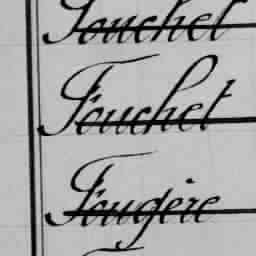 Fouchet
Fouchet
Fougère